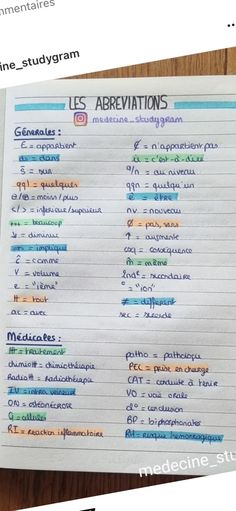 mmentaires
ine_studygram
LES ABREVIATIONS
medecine_studygram
Générales :
E = appartient
ds = dans
s̄ = sur
qql = quelques
⊖/⊕ = moins/plus
</> = inférieur/supérieur
+++ = beaucoup
↓ = diminue
= implique
ĉ = comme
V = volume
e = "ième"
tt = tout
ac = avec
∉ = n'appartient pas
ie = c'est-à-dire
a/n = au niveau
qqn = quelqu'un
ê = être
nv = nouveau
∅ = pas, sans
↑ = augmente
csq = conséquence
m̂ = même
2nde = secondaire
° = "ion"
≠ = différent
sec = seconde
Médicales :
ttt = traitement
chimiottt = chimiothérapie
Radiottt = Radiothérapie
IV = intra veineux
ON = ostéonécrose
RI = réaction inflammatoire
patho = pathologie
PEC = prise en charge
CAT = conduite à tenir
VO = voie orale
BP = biphosphonates
RH = risque hémorragique
medecine_stu